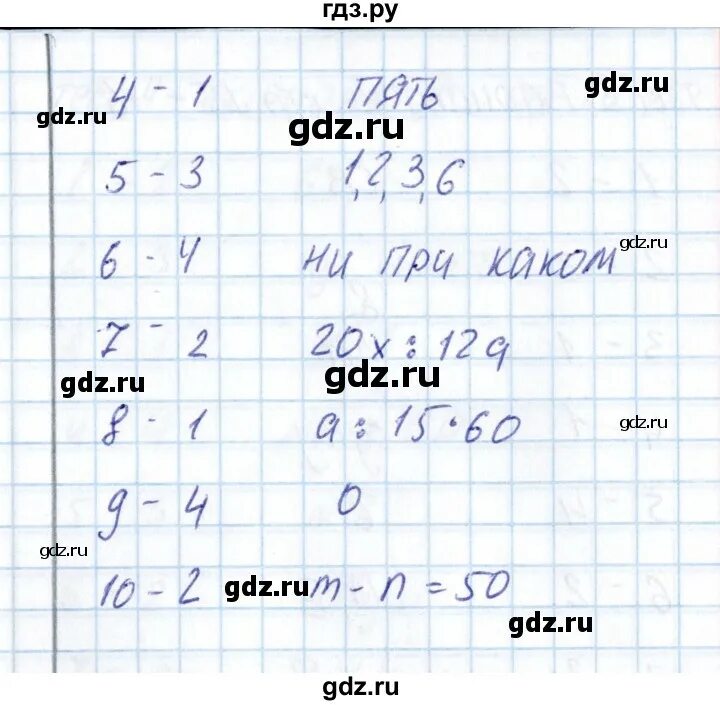 гдз.ру
4 - 1 ПЯТЬ
gdz.ru
gdz.ru
gdz.ru
5 - 3 1, 2, 3, 6
6 - 4 ни при каком
gdz.ru
7 - 2 20х : 12а
gdz.ru
gdz.ru
8 - 1 а : 15 · 60
gdz.ru
9 - 4 0
gdz.ru
10 - 2 m - n = 50
gdz.ru
gdz.ru
gdz.ru